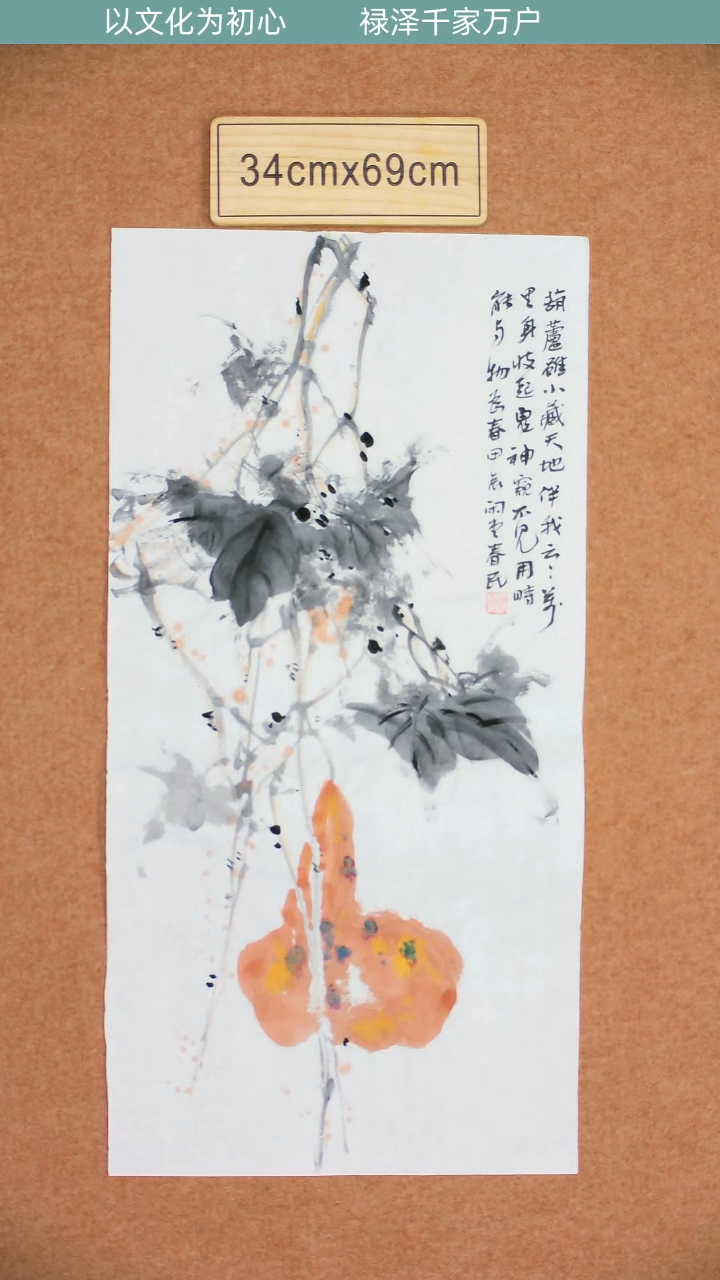 以文化为初心 禄泽千家万户
34cmx69cm
葫蘆雖小藏天地伴我云云萬
里身收起鬼神窺不見用時
能与物为春甲辰雨堂春民